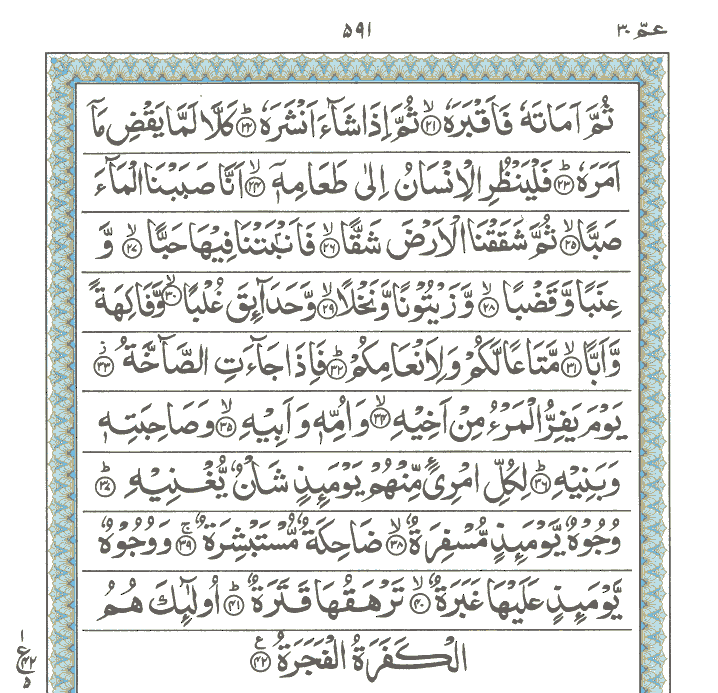 عمّ ٣٠
٥٩١
ثُمَّ اَمَاتَهٗ فَاَقْبَرَهٗ ۙ﴿٢١﴾ ثُمَّ اِذَا شَآءَ اَنْشَرَهٗ ؕ﴿٢٢﴾ كَلَّا لَمَّا يَقْضِ مَاۤ
اَمَرَهٗ ؕ﴿٢٣﴾ فَلْيَنْظُرِ الْاِنْسَانُ اِلٰى طَعَامِهٖۤ ۙ﴿٢٤﴾ اَنَّا صَبَبْنَا الْمَآءَ
صَبًّا ۙ﴿٢٥﴾ ثُمَّ شَقَقْنَا الْاَرْضَ شَقًّا ۙ﴿٢٦﴾ فَاَنْۢبَتْنَا فِيْهَا حَبًّا ۙ﴿٢٧﴾ وَّ
عِنَبًا وَّقَضْبًا ۙ﴿٢٨﴾ وَّزَيْتُوْنًا وَّنَخْلًا ۙ﴿٢٩﴾ وَّحَدَآئِقَ غُلْبًا ۙ﴿٣٠﴾ وَّفَاكِهَةً
وَّاَبًّا ۙ﴿٣١﴾ مَّتَاعًا لَّكُمْ وَلِاَنْعَامِكُمْ ؕ﴿٣٢﴾ فَاِذَا جَآءَتِ الصَّآخَّةُ ۫﴿٣٣﴾
يَوْمَ يَفِرُّ الْمَرْءُ مِنْ اَخِيْهِ ۙ﴿٣٤﴾ وَاُمِّهٖ وَاَبِيْهِ ۙ﴿٣٥﴾ وَصَاحِبَتِهٖ
وَبَنِيْهِ ؕ﴿٣٦﴾ لِكُلِّ امْرِئٍ مِّنْهُمْ يَوْمَئِذٍ شَاْنٌ يُّغْنِيْهِ ؕ﴿٣٧﴾
وُجُوْهٌ يَّوْمَئِذٍ مُّسْفِرَةٌ ۙ﴿٣٨﴾ ضَاحِكَةٌ مُّسْتَبْشِرَةٌ ۚ﴿٣٩﴾ وَوُجُوْهٌ
يَّوْمَئِذٍ عَلَيْهَا غَبَرَةٌ ۙ﴿٤٠﴾ تَرْهَقُهَا قَتَرَةٌ ؕ﴿٤١﴾ اُولٰٓئِكَ هُمُ
الْكَفَرَةُ الْفَجَرَةُ ﴿٤٢﴾ ع
١
ع ٤٢
٥